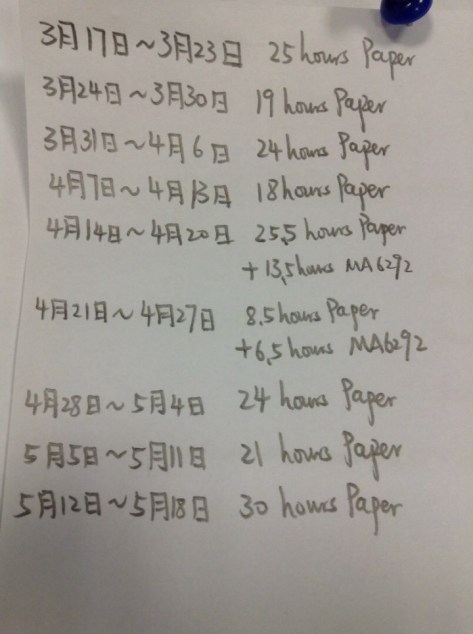 3月17日~3月23日 25hours Paper
3月24日~3月30日 19hours Paper
3月31日~4月6日 24hours Paper
4月7日~4月13日 18hours Paper
4月14日~4月20日 25.5hours Paper
+13.5hours MA6292
4月21日~4月27日 8.5hours Paper
+6.5hours MA6292
4月28日~5月4日 24 hours Paper
5月5日~5月11日 21 hours Paper
5月12日~5月18日 30 hours Paper